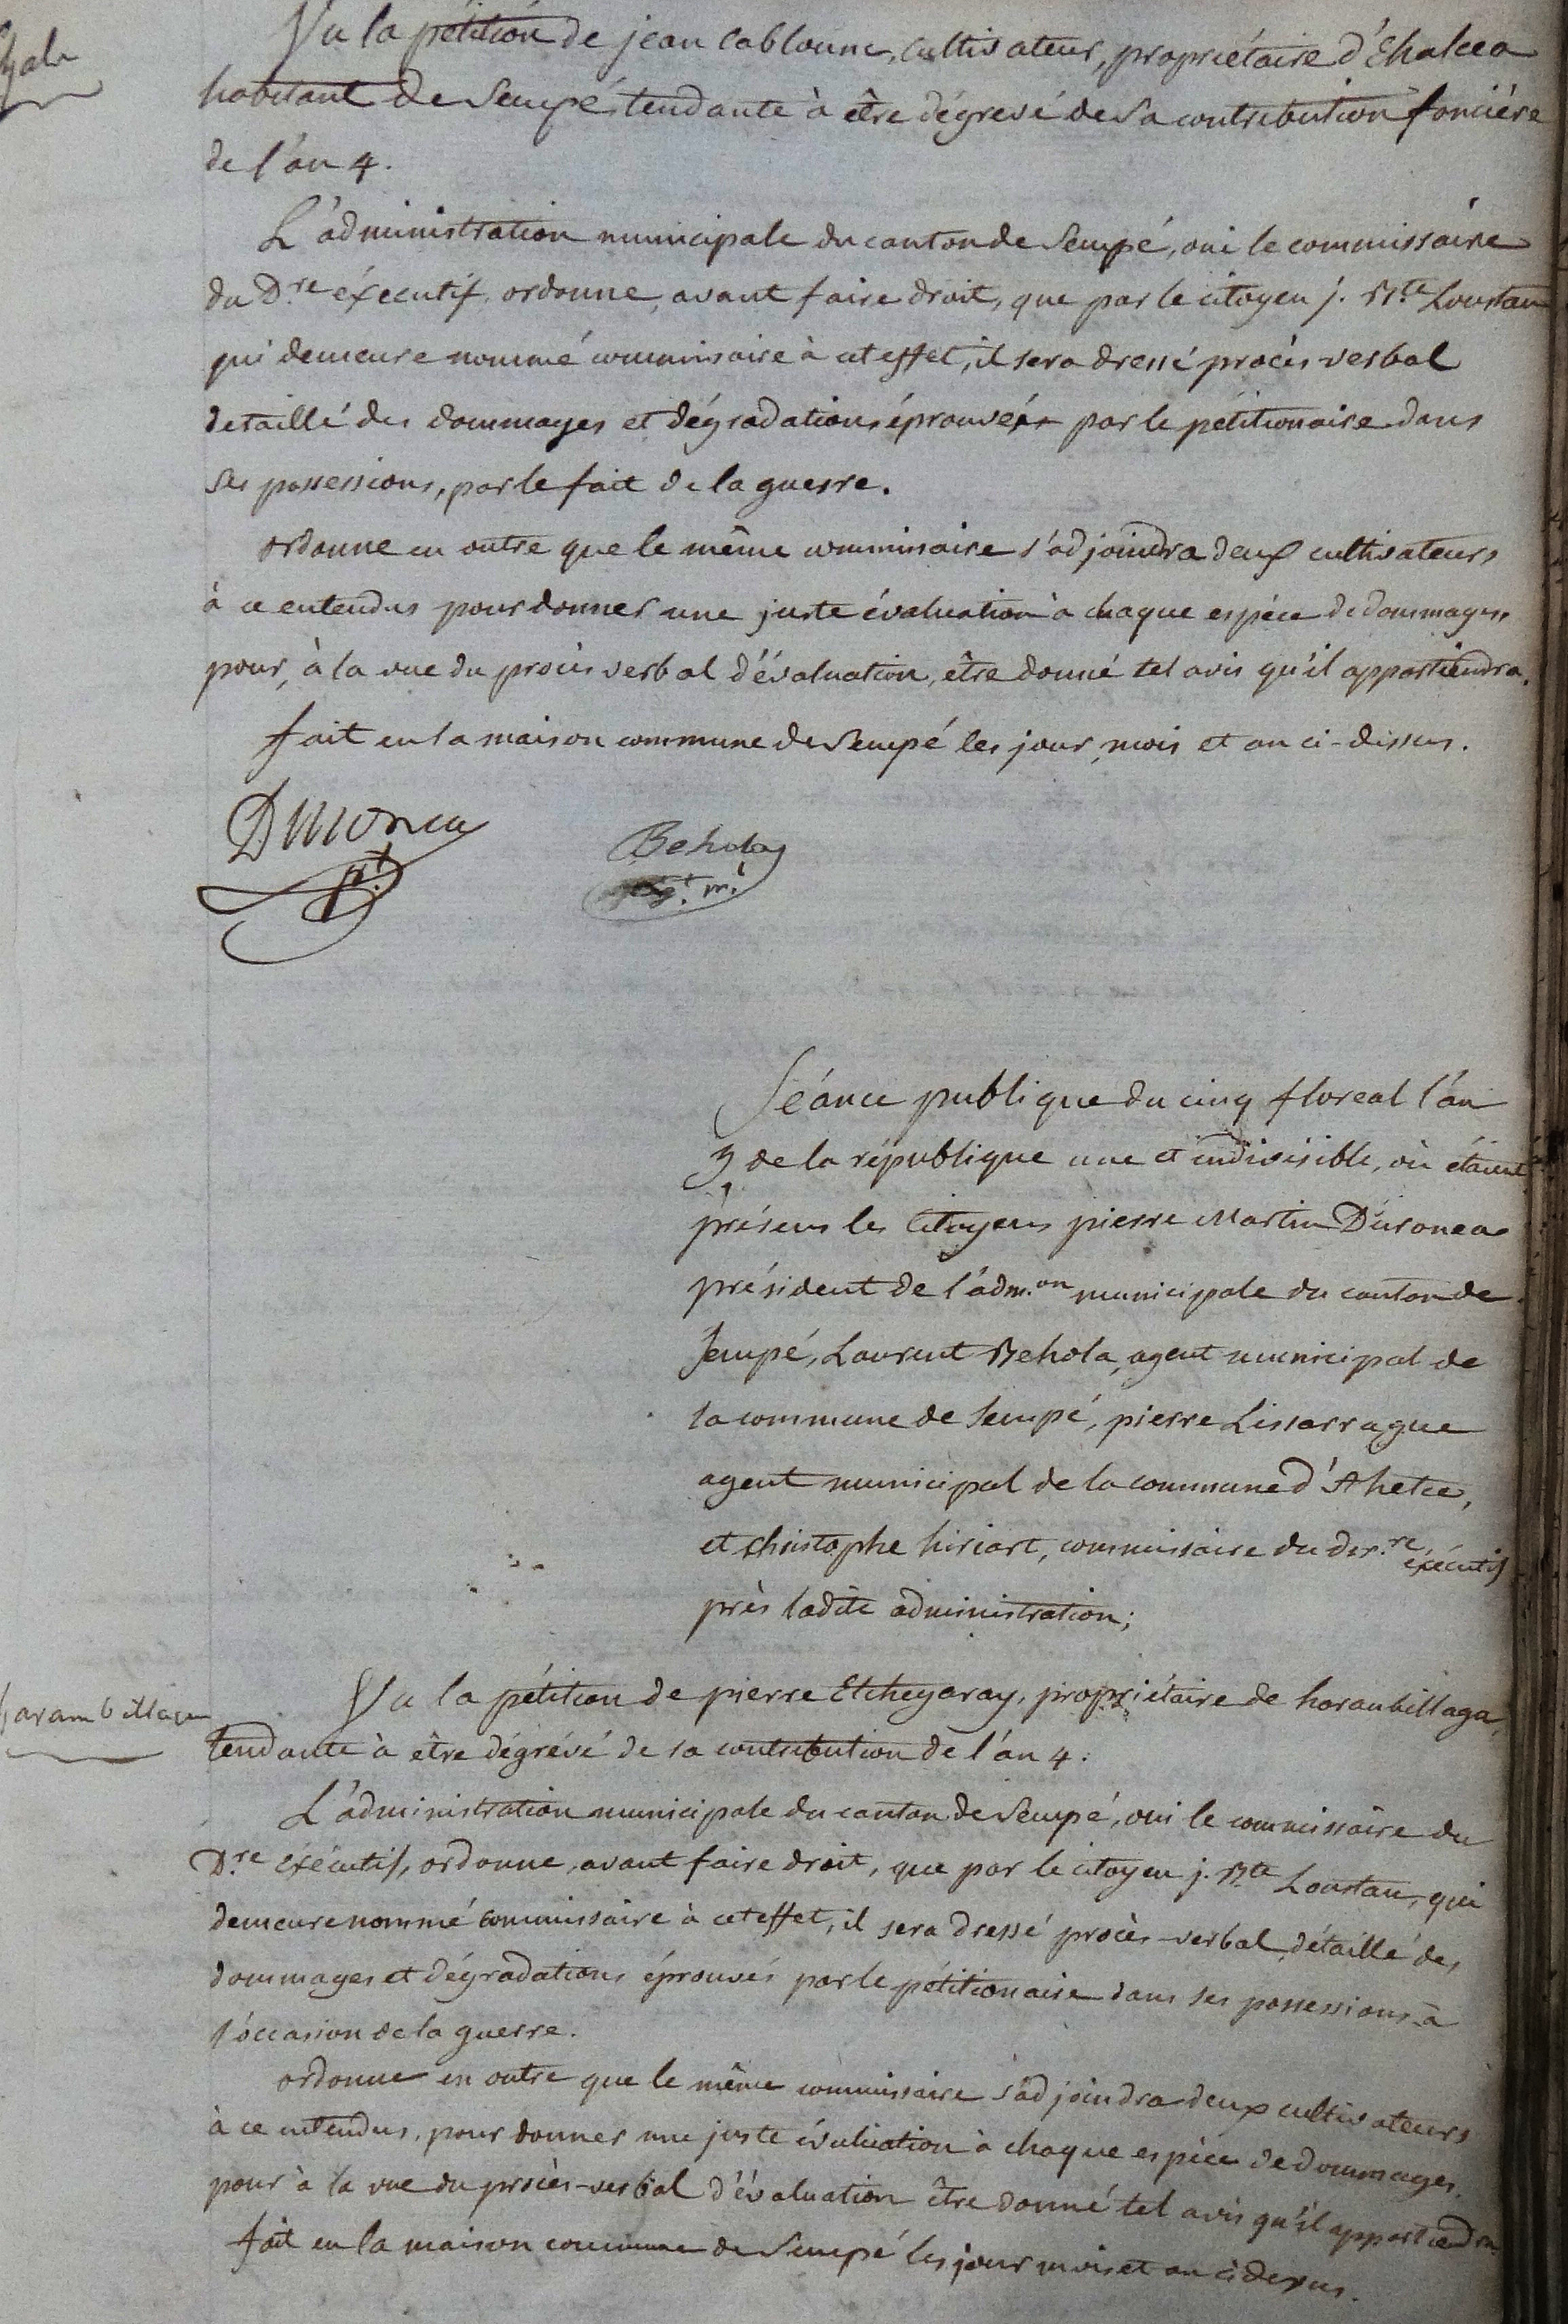 Vu la pétition de jean Cabloune, Cultivateur, propriétaire d'Ehalcea
habitant de Sempé, tendante à être dégrevé de sa contribution foncière
de l'an 4.
L'administration municipale du canton de Sempé, oui le commissaire
du D.re éxecutif, ordonne, avant faire droit, que par le citoyen j. B.te Loustau
qui demeure nommé commissaire à cet effet, il sera dressé procès-verbal
detaillé des dommages et dégradations éprouvés par le pétitionaire dans
ses possessions, par le fait de la guerre.
ordonne en outre que le même commissaire s'adjoindra deux cultivateurs
à ce entendus pour donner une juste évaluation à chaque espèce de dommages,
pour, à la vue du procès verbal d'évaluation, être donné tel avis qu'il appartiendra.
fait en la maison commune de Sempé les jour, mois et an ci-dessus.
Duronea Behola
p.t ag.t m.l
Séance publique du cinq floreal l'an
5 de la république une et indivisible, où étaient
présens les Citoyens pierre Martin Duronea
président de l'adm.on municipale du canton de
Sempé, Laurent Behola, agent municipal de
la commune de Sempé, pierre Lissarrague
agent municipal de la commune d'Ahetce,
et christophe hiriart, commissaire du dir.re exécutif
près ladite administration;
harambillaga
Vu la pétition de pierre Etchegaray, propriétaire de harambillaga,
tendante à être dégrévé de sa contribution de l'an 4.
L'administration municipale du canton de Sempé, oui le commissaire du
D.re exécutif, ordonne, avant faire droit, que par le citoyen j. B.te Loustau, qui
demeure nommé commissaire à cet effet, il sera dressé procès-verbal, détaillé des
dommages et dégradations éprouvés par le pétitionaire dans ses possessions à
l'occasion de la guerre.
ordonne en outre que le même commissaire s'adjoindra deux cultivateurs
à ce entendus, pour donner une juste évaluation à chaque espèce de dommages,
pour à la vue du procès-verbal d'évaluation être donné tel avis qu'il appartiendra.
fait en la maison commune de Sempé les jour mois et an ci dessus.